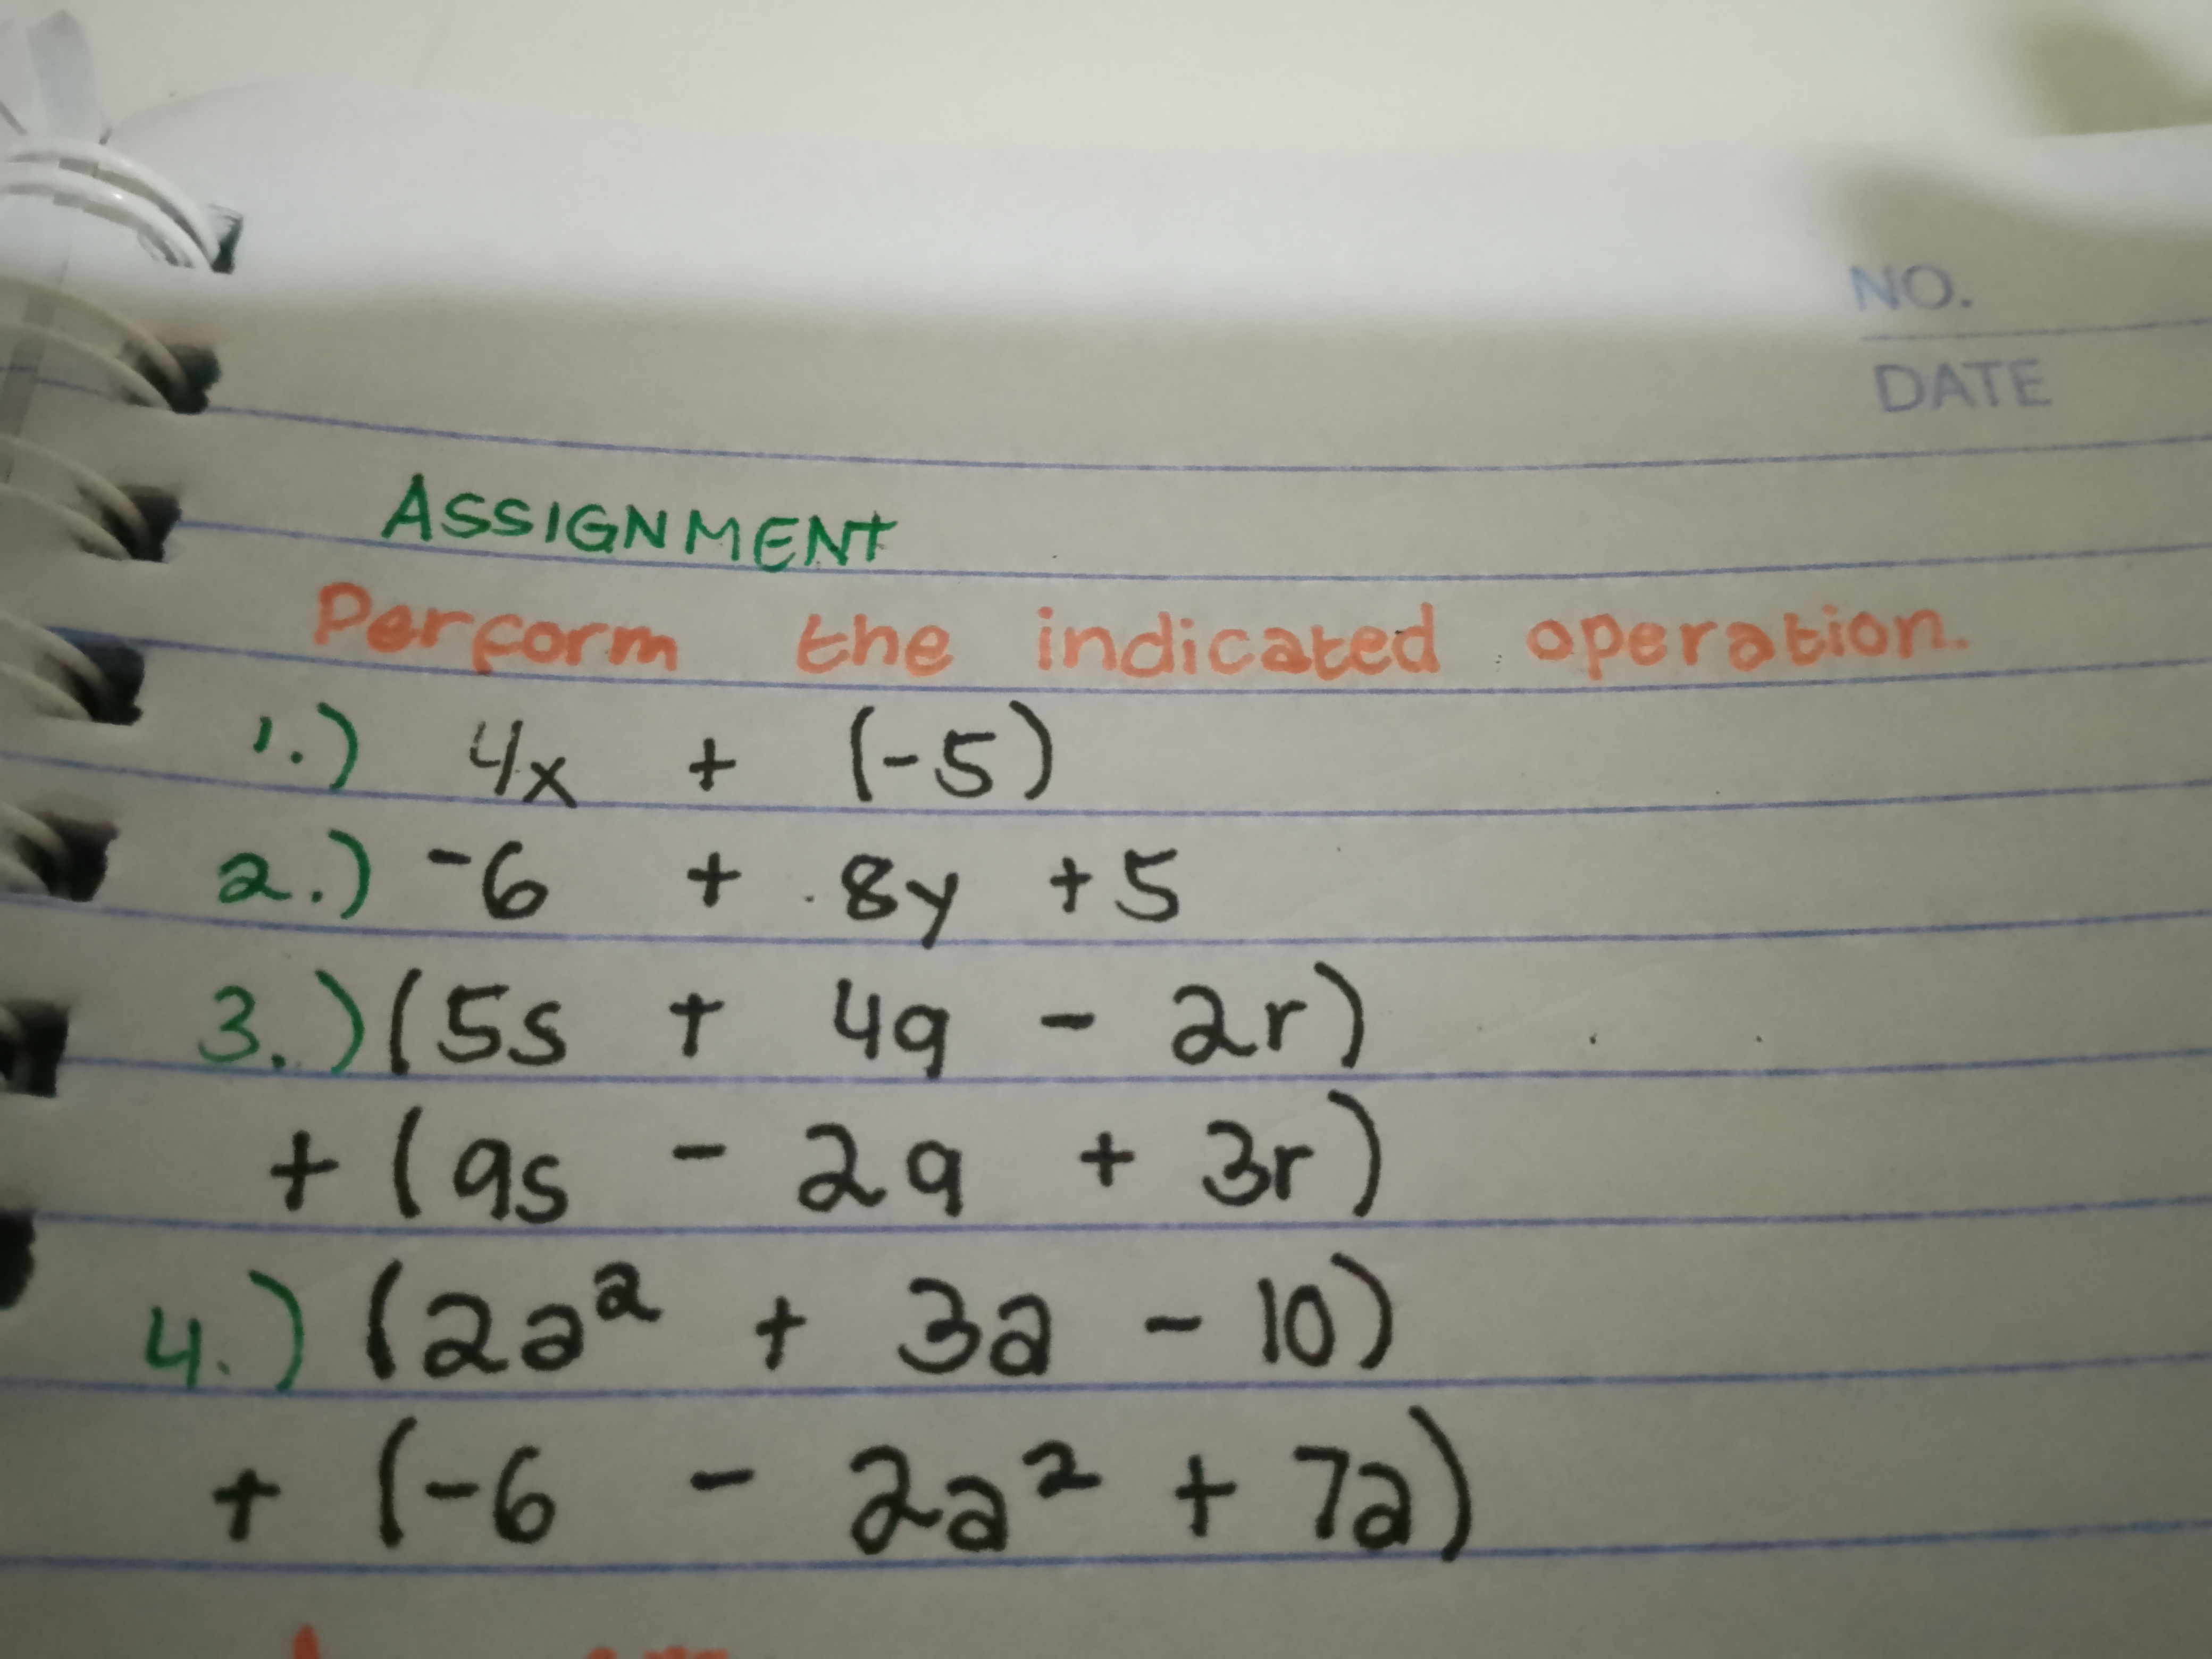 NO.
DATE
ASSIGNMENT
Perform the indicated operation.
1.) 4x + (-5)
2.) -6 + 8y +5
3.) (5s + 4q - 2r)
+ (9s - 2q + 3r)
4.) (2a² + 3a - 10)
+ (-6 - 2a² + 7a)